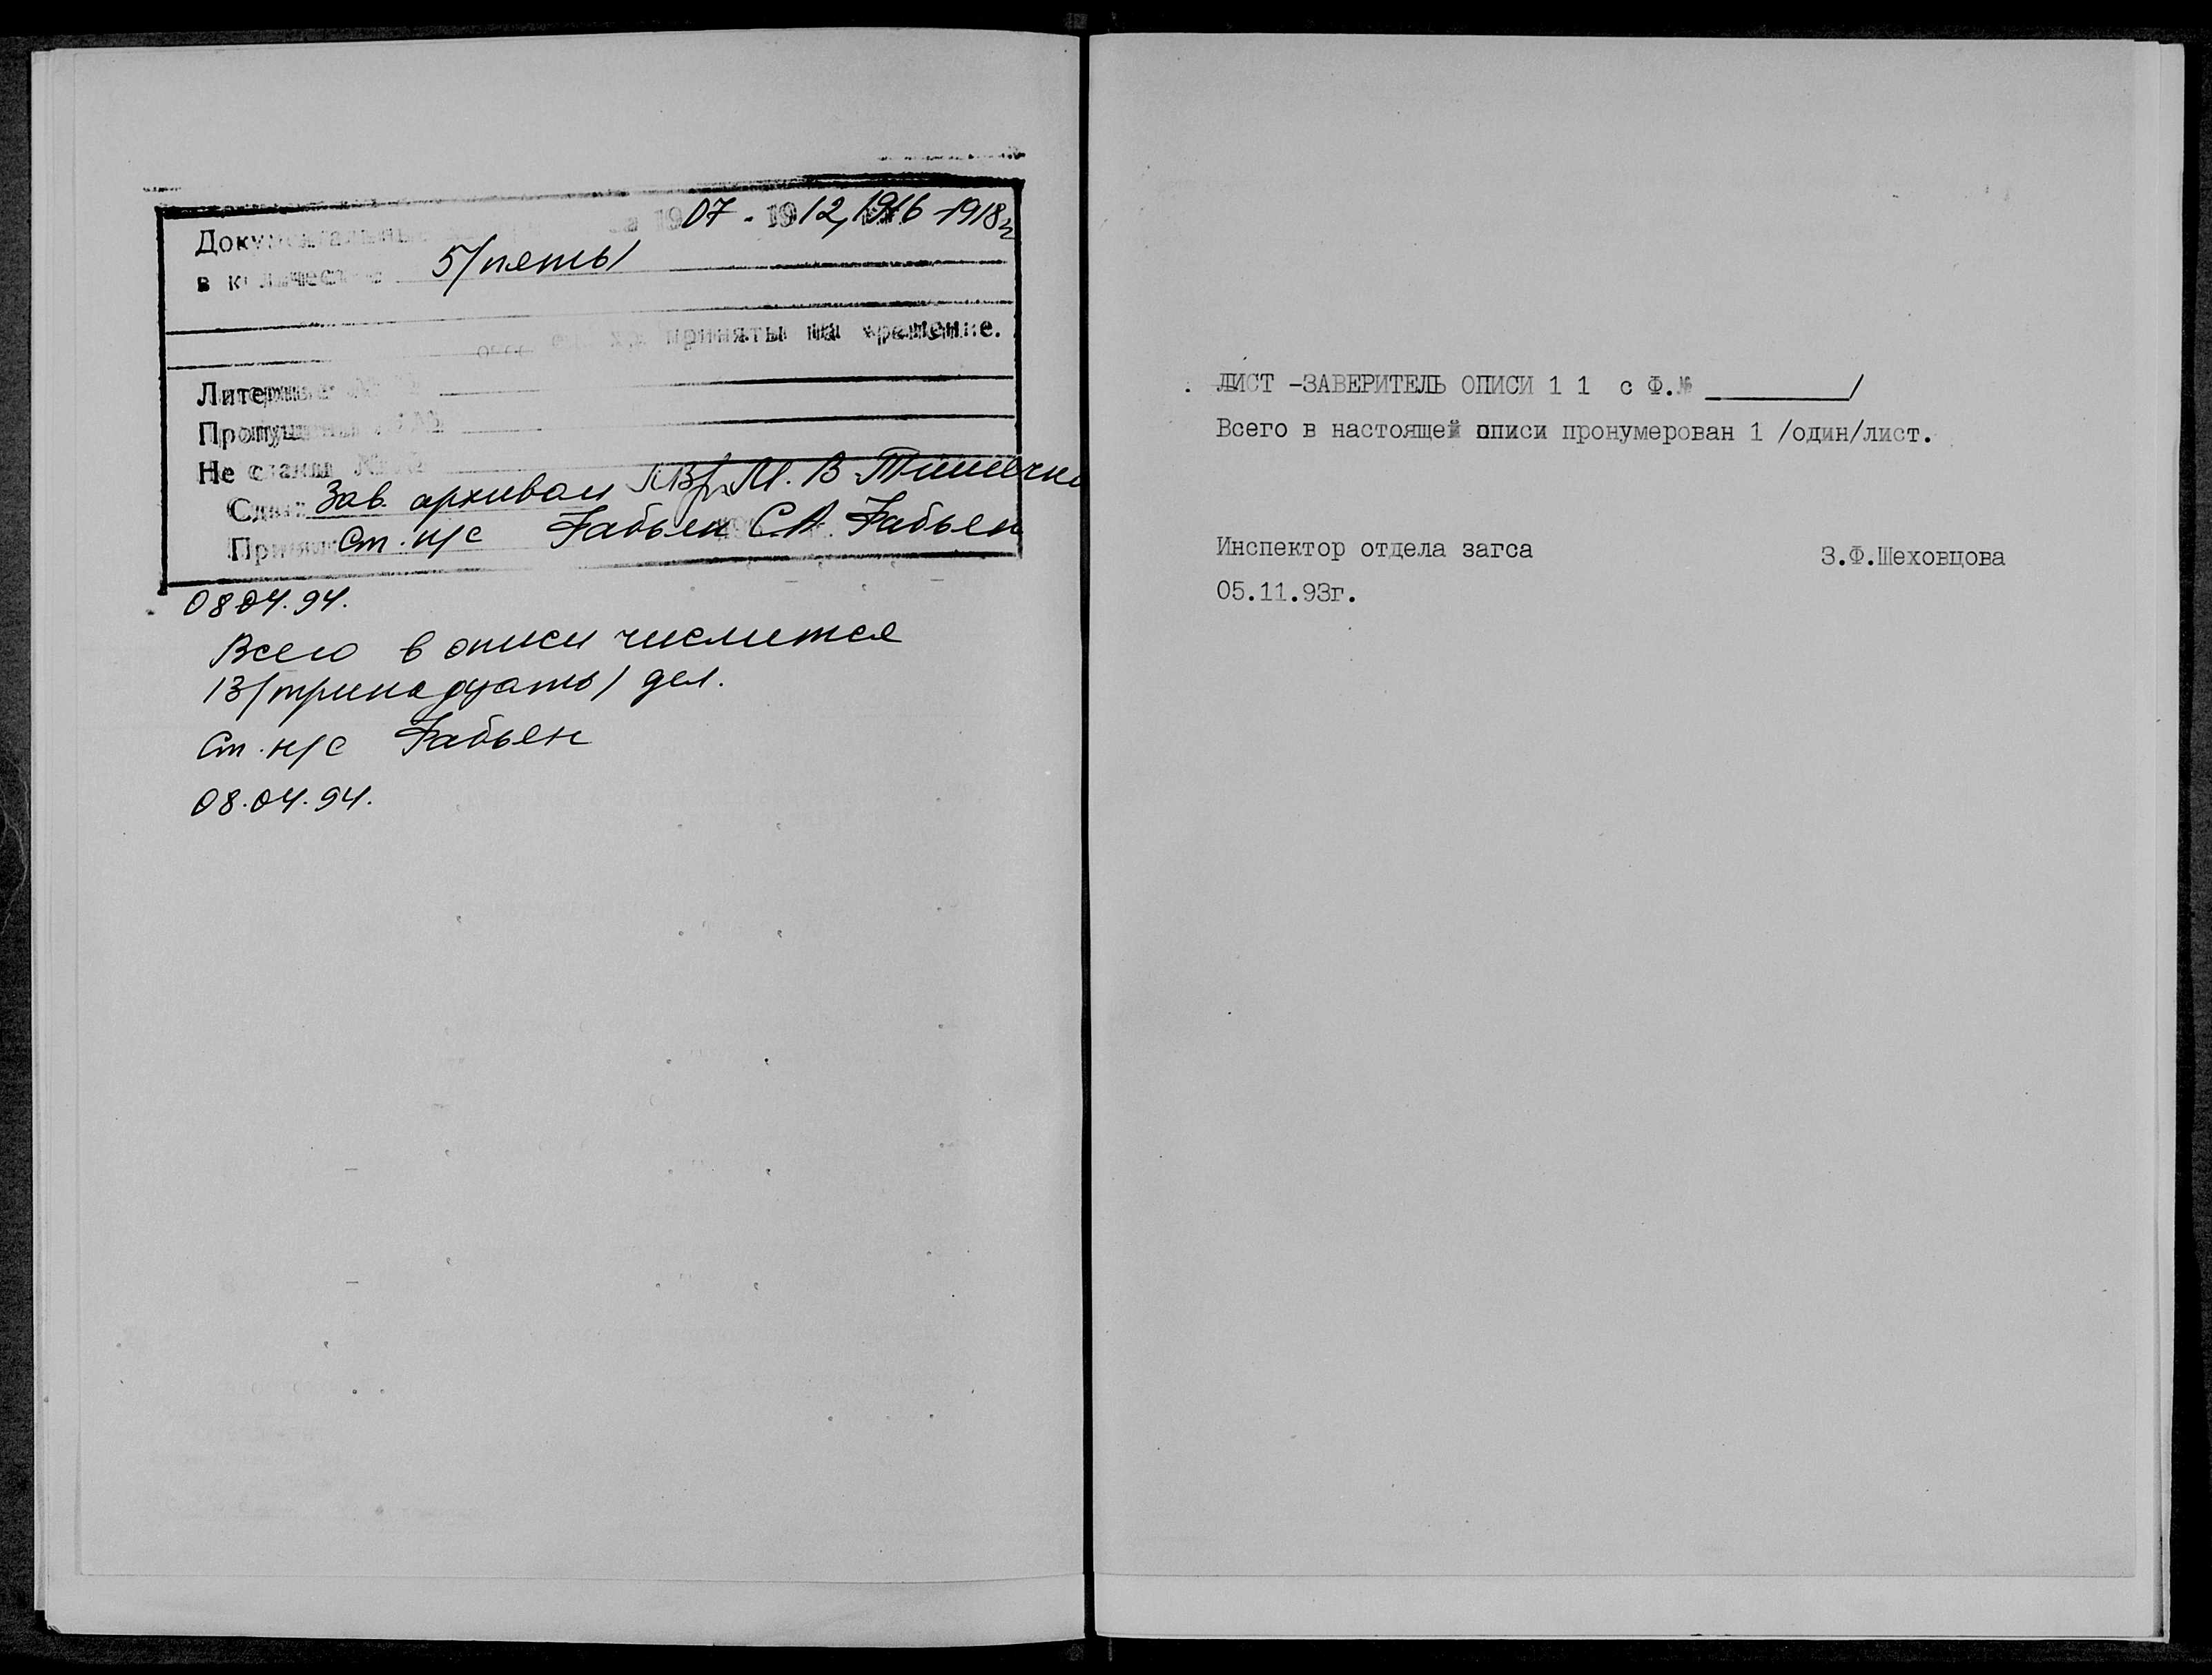 Документальные за 1907 - 1912, 1916 - 1918г
в количестве 5/пяты/
приняты на хранение.
Литерные №№
Пропущены №№
Не стали №№
Сдал: Зав. архивом М. В.
Принял Ст. н/с Бабьен С.А. Бабьен
08.04.94.
Всего в описи числится
13/тринадцать/ дел.
Ст. н/с Бабьен
08.04.94.
ЛИСТ -ЗАВЕРИТЕЛЬ ОПИСИ 1 1 с Ф.№ ________/
Всего в настоящей описи пронумерован 1 /один/лист.
Инспектор отдела загса З.Ф.Шеховцова
05.11.93г.